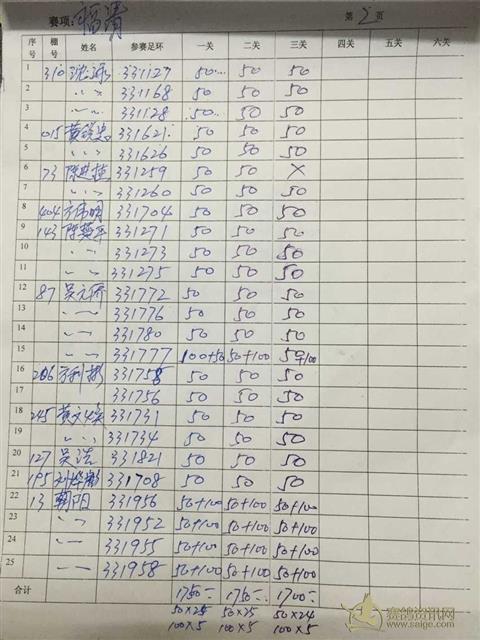 赛项: 福清 第 2 页
序号 棚号 姓名 参赛足环 一关 二关 三关 四关 五关 六关
1 310 331127 50 50 50
2 〃 331168 50 50 50
3 〃 331128 50 50 50
4 015 331621 50 50 50
5 〃 331626 50 50 50
6 73 331259 50 50 ×
7 〃 331260 50 50 50
8 404 方伟明 331704 50 50 50
9 143 331271 50 50 50
10 〃 331273 50 50 50
11 〃 331275 50 50 50
12 87 吴元侨 331772 50 50 50
13 〃 331776 50 50 50
14 〃 331780 50 50 50
15 〃 331777 100+50 50+100 50+100
16 206 方利彬 331758 50 50 50
17 331756 50 50 50
18 245 331731 50 50 50
19 〃 331734 50 50 50
20 127 吴浩 331821 50 50 50
21 195 331708 50 50 50
22 13 朝阳 331956 50+100 50+100 50+100
23 〃 331952 50+100 50+100 50+100
24 〃 331955 50+100 50+100 50+100
25 〃 331958 50+100 50+100 50+100
合计 1750 1750 1700
50×25 50×25 50×24
100×5 100×5 100×5
赛鸽资讯网
www.saige.com